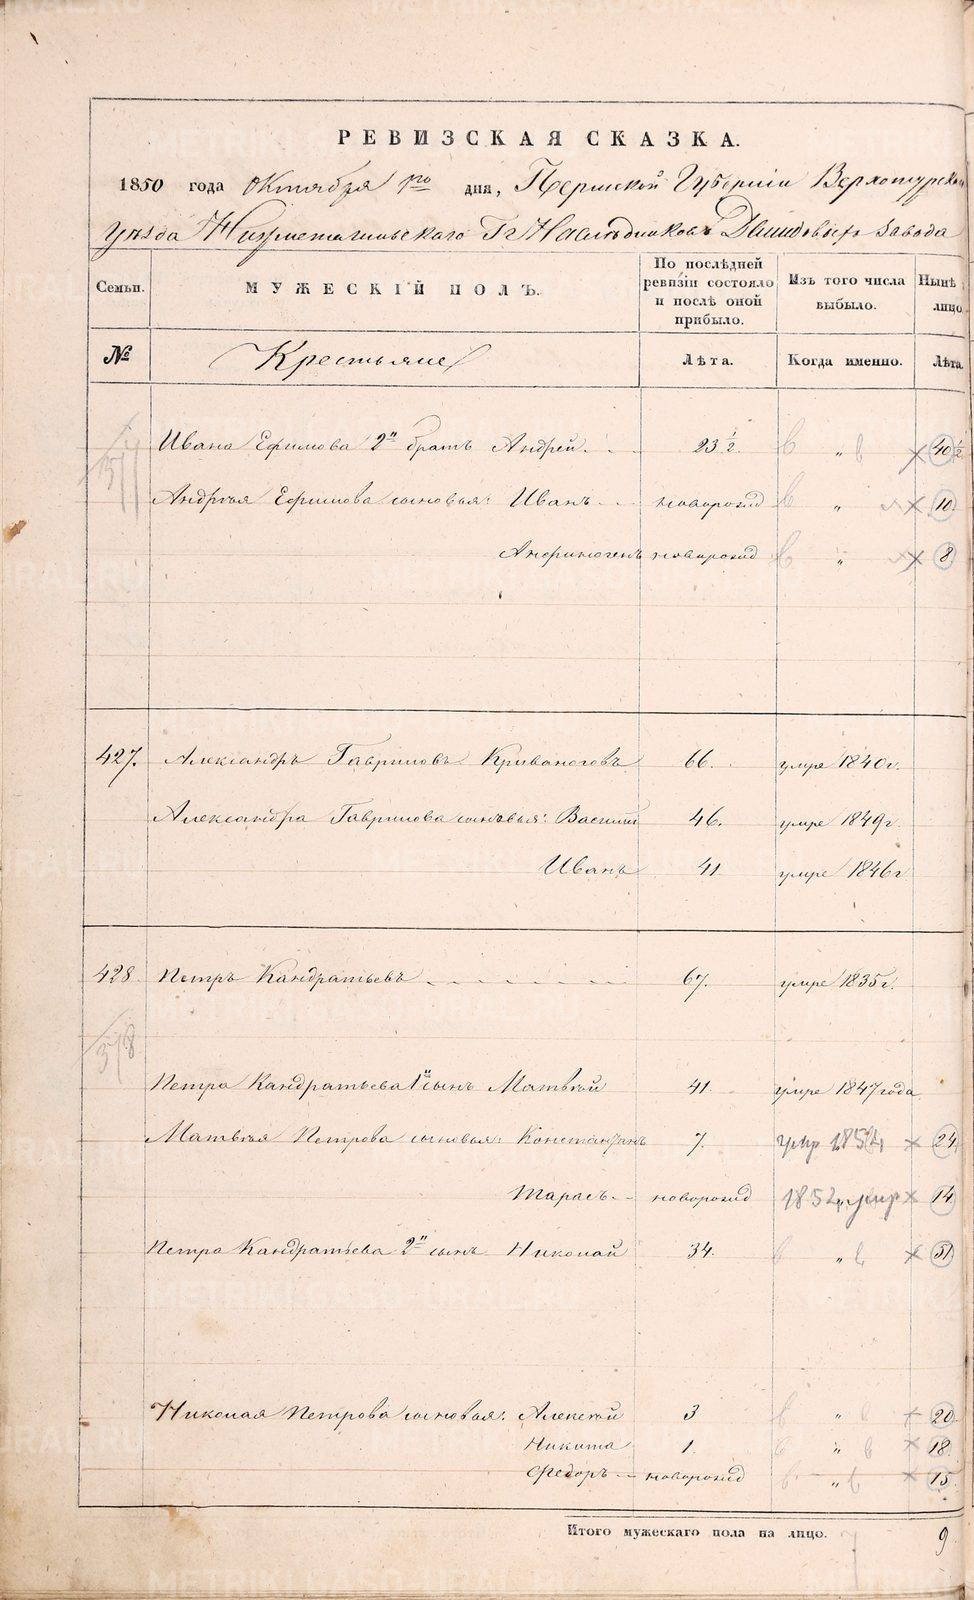 РЕВИЗСКАЯ СКАЗКА.
1850 года Октября 1го дня, Пермской Губернии Верхотурскаго
уѣзда Нижнетагильскаго Гг Наслѣдниковъ Демидовыхъ завода
Семьи. МУЖЕСКІЙ ПОЛЪ. По послѣдней ревизіи состояло и послѣ оной прибыло. Изъ того числа выбыло. Нынѣ лицо
№ Крестьяне Лѣта. Когда именно. Лѣта
Ивана Ефимова 2й братъ Андрей 23 ½ „ 40 ½
Андрея Ефимова сыновья: Иванъ новорожд „ 10
Анфиногенъ новорожд „ 8
427. Александръ Гавриловъ Кривоноговъ 66. умре 1840 г.
Александра Гаврилова сыновья: Василій 46. умре 1849 г.
Иванъ 41 умре 1846 г
428 Петръ Кандратьевъ 67. умре 1835 г.
378
Петра Кандратьева 1й сынъ Матвѣй 41. умре 1847 года
Матвѣя Петрова сыновья: Константинъ 7. умр 1852 24
Тарасъ новорожд 1852 умр 14
Петра Кандратьева 2й сынъ Николай 34. „ 51
Николая Петрова сыновья: Алексѣй 3 „ 20
Никита 1. „ 18.
Федоръ новорожд „ 15
Итого мужескаго пола на лицо. 9
METRIKI.GASO-URAL.RU